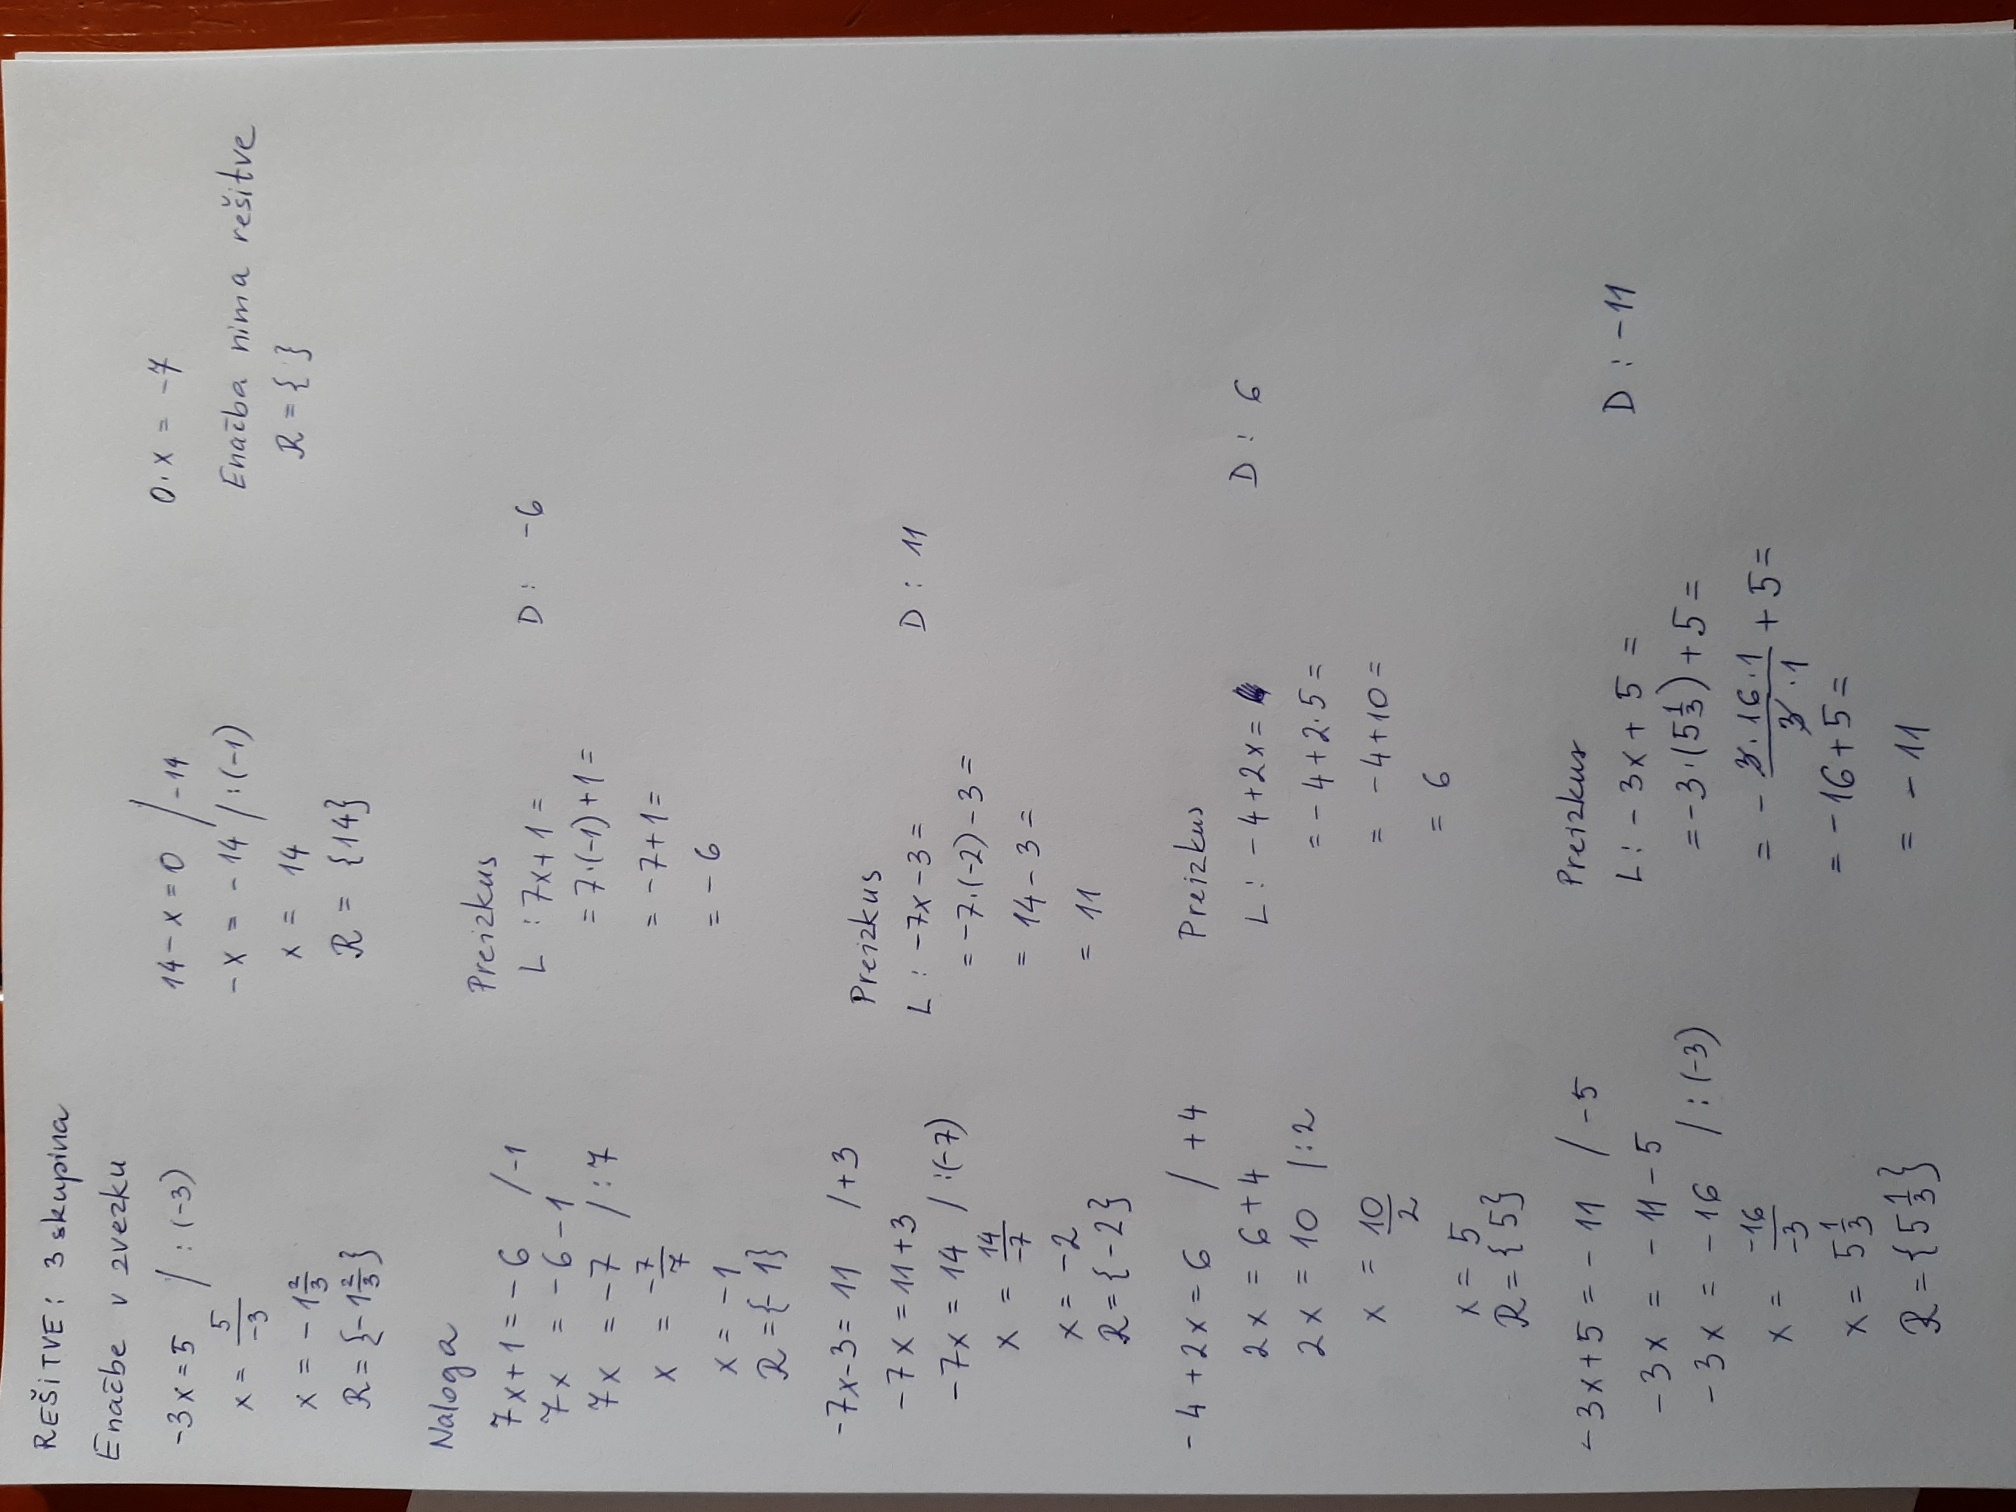 REŠITVE: 3 skupina
Enačbe v zvezku
-3x=5 /:(-3)
x = 5/-3
x = -1 2/3
R={-1 2/3}
14-x=0 /-14
-x = -14 /:(-1)
x = 14
R = {14}
0·x = -7
Enačba nima rešitve
R={ }
Naloga
7x+1=-6 /-1
7x = -6-1
7x = -7 /:7
x = -7/7
x = -1
R={-1}
Preizkus
L: 7x+1=
=7·(-1)+1=
= -7+1=
= -6
D: -6
-7x-3=11 /+3
-7x=11+3
-7x=14 /:(-7)
x = 14/-7
x=-2
R={-2}
Preizkus
L: -7x-3=
=-7·(-2)-3=
= 14-3=
= 11
D: 11
-4+2x=6 /+4
2x = 6+4
2x = 10 /:2
x = 10/2
x=5
R={5}
Preizkus
L: -4+2x=
=-4+2·5=
= -4+10=
= 6
D: 6
-3x+5=-11 /-5
-3x = -11-5
-3x = -16 /:(-3)
x= -16/-3
x= 5 1/3
R={5 1/3}
Preizkus
L: -3x+5=
=-3·(5 1/3)+5=
= - 3·16·1/3·1 +5=
=-16+5=
= -11
D: -11